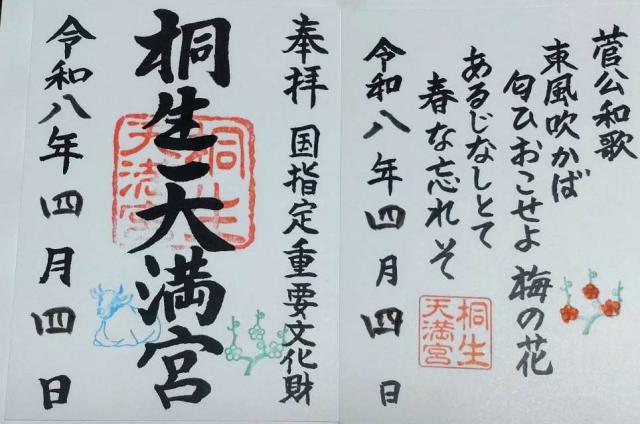 菅公和歌
東風吹かば
匂ひおこせよ 梅の花
あるじなしとて
春な忘れそ
令和八年四月四日
桐生
天満宮
奉拝 国指定重要文化財
桐生天満宮
桐生
天満宮
令和八年四月四日